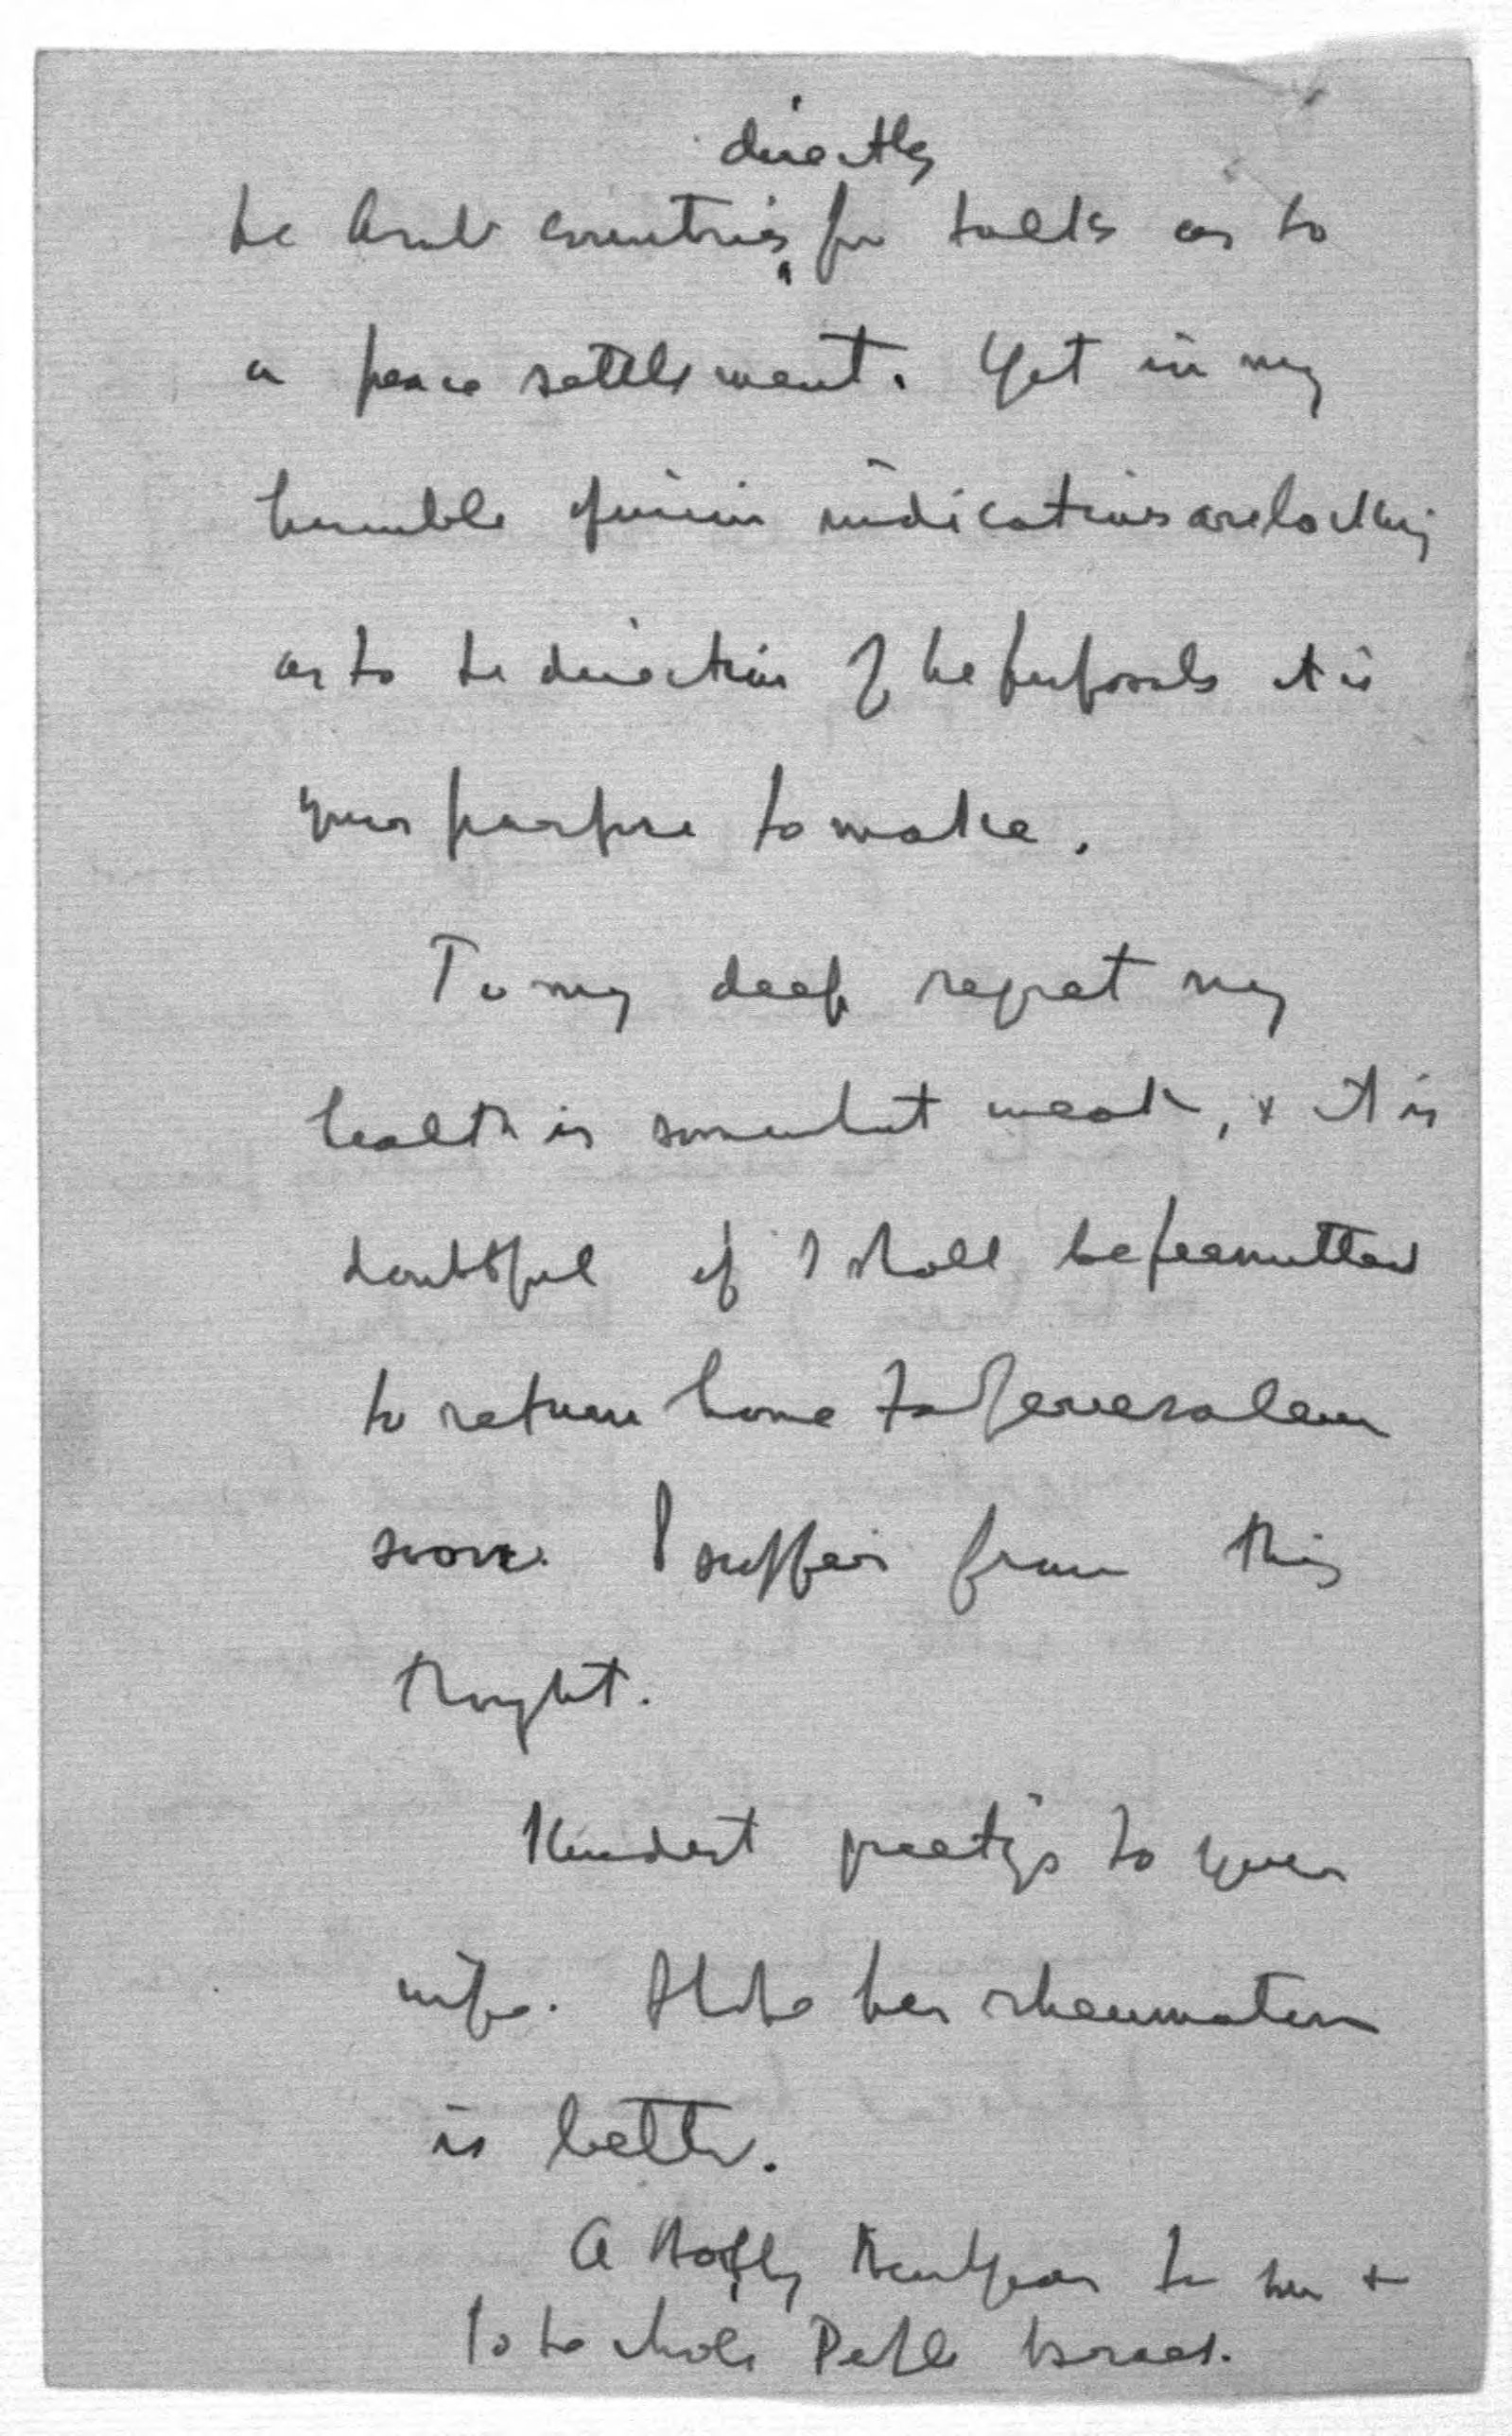 directly
the Arab countries for talks as to
a peace settlement. Yet in my
humble opinion indications are lacking
as to the direction of the proposals it is
your purpose to make.
To my deep regret my
health is somewhat weak, & it is
doubtful if I shall be permitted
to return home to Jerusalem
soon. I suffer from this
thought.
Kindest greetings to your
wife. I hope her rheumatism
is better.
A Happy New Year to her &
to the whole People Israel.